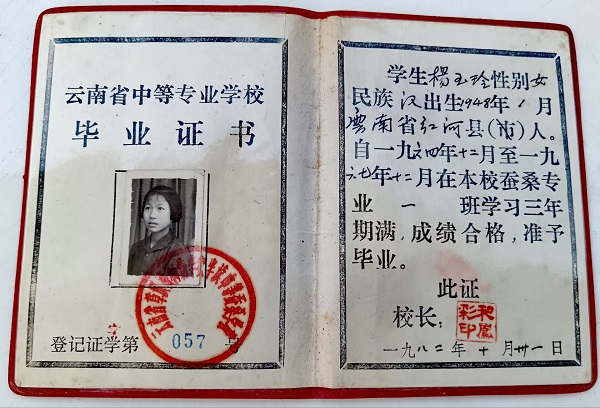 云南省中等专业学校
毕业证书
登记证学第 057 号
学生楊玉玲性别女
民族汉出生1948年1月
雲南省红河县(市)人。
自一九六四年十二月至一九
六七年十二月在本校蚕桑专
业一班学习三年
期满,成绩合格,准予
毕业。
此证
校长:
和凤彩印
一九八二年十月卅一日